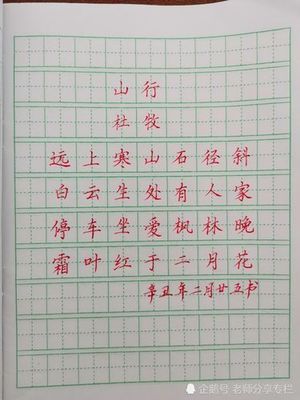 山行
杜牧
远上寒山石径斜
白云生处有人家
停车坐爱枫林晚
霜叶红于二月花
辛丑年二月廿五书
企鹅号 老师分享专栏